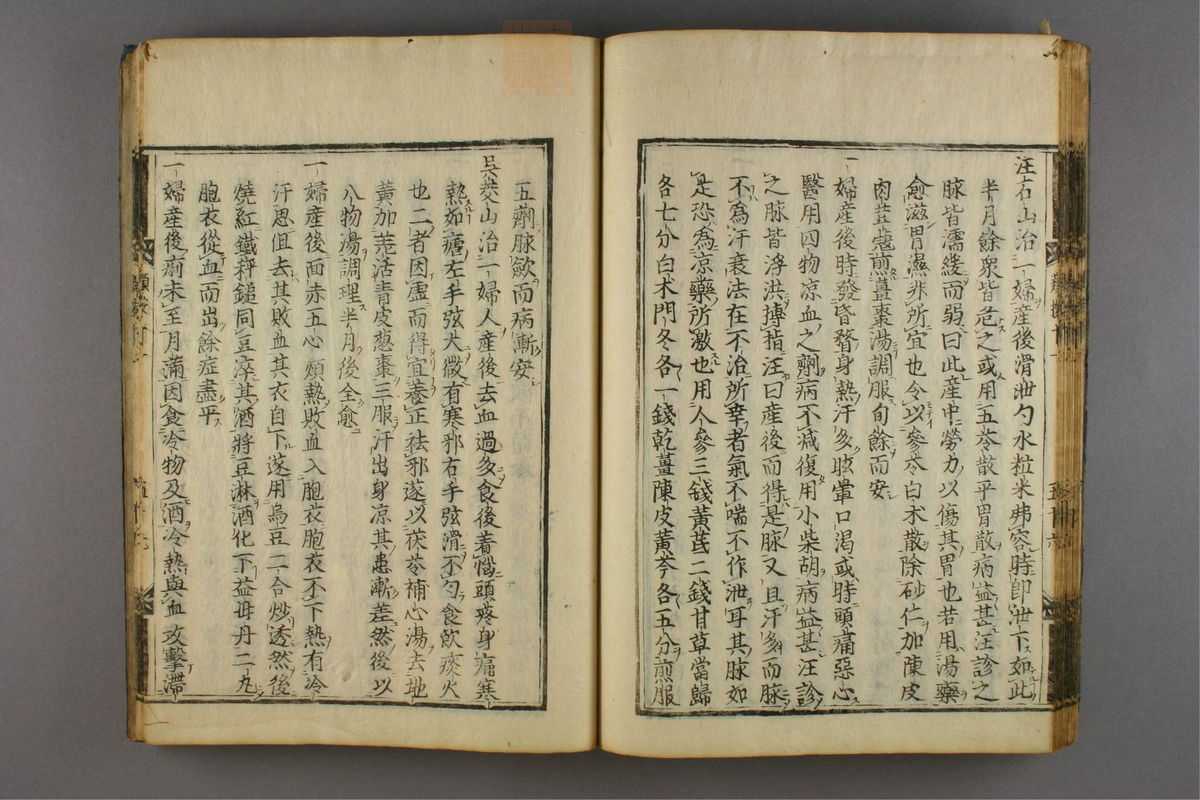 汪石山治一婦産後滑泄勺水粒米弗容時即泄下如此
半月餘衆皆危之或用五苓散平胃散病益甚汪診之
脉皆濡緩而弱曰此産中勞力以傷其胃也若用湯藥
愈滋胃濕非所宜也令以參苓白术散除砂仁加陳皮
肉荳蔻煎薑棗湯調服旬餘而安
一婦産後時發昏瞀身熱汗多眩暈口渴或時頭痛惡心
醫用四物凉血之劑病不减復用小柴胡病益甚汪診
之脉皆浮洪搏指汪曰産後而得是脉又且汗多而脉
不爲汗衰法在不治所幸者氣不喘不作泄耳其脉如
是恐爲凉藥所激也用人參三錢黃芪二錢甘草當歸
各七分白术門冬各一錢乾薑陳皮黃芩各五分煎服
五劑脉歛而病漸安
吳茭山治一婦人産後去血過多食後着惱頭疼身痛寒
熱如瘧左手弦大微有寒邪右手弦滑不勻食飲痰火
也二者因虛而得宜養正祛邪遂以茯苓補心湯去地
黃加羗活青皮葱棗三服汗出身凉其患漸差然後以
八物湯調理半月後全愈
一婦産後面赤五心煩熱敗血入胞衣胞衣不下熱有冷
汗思但去其敗血其衣自下遂用烏豆二合炒透然後
燒紅鐵秤鎚同豆淬其酒將豆淋酒化下益母丹二丸
胞衣從血而出餘症盡平
一婦産後痢未至月滿因食冷物及酒冷熱與血攻擊滯